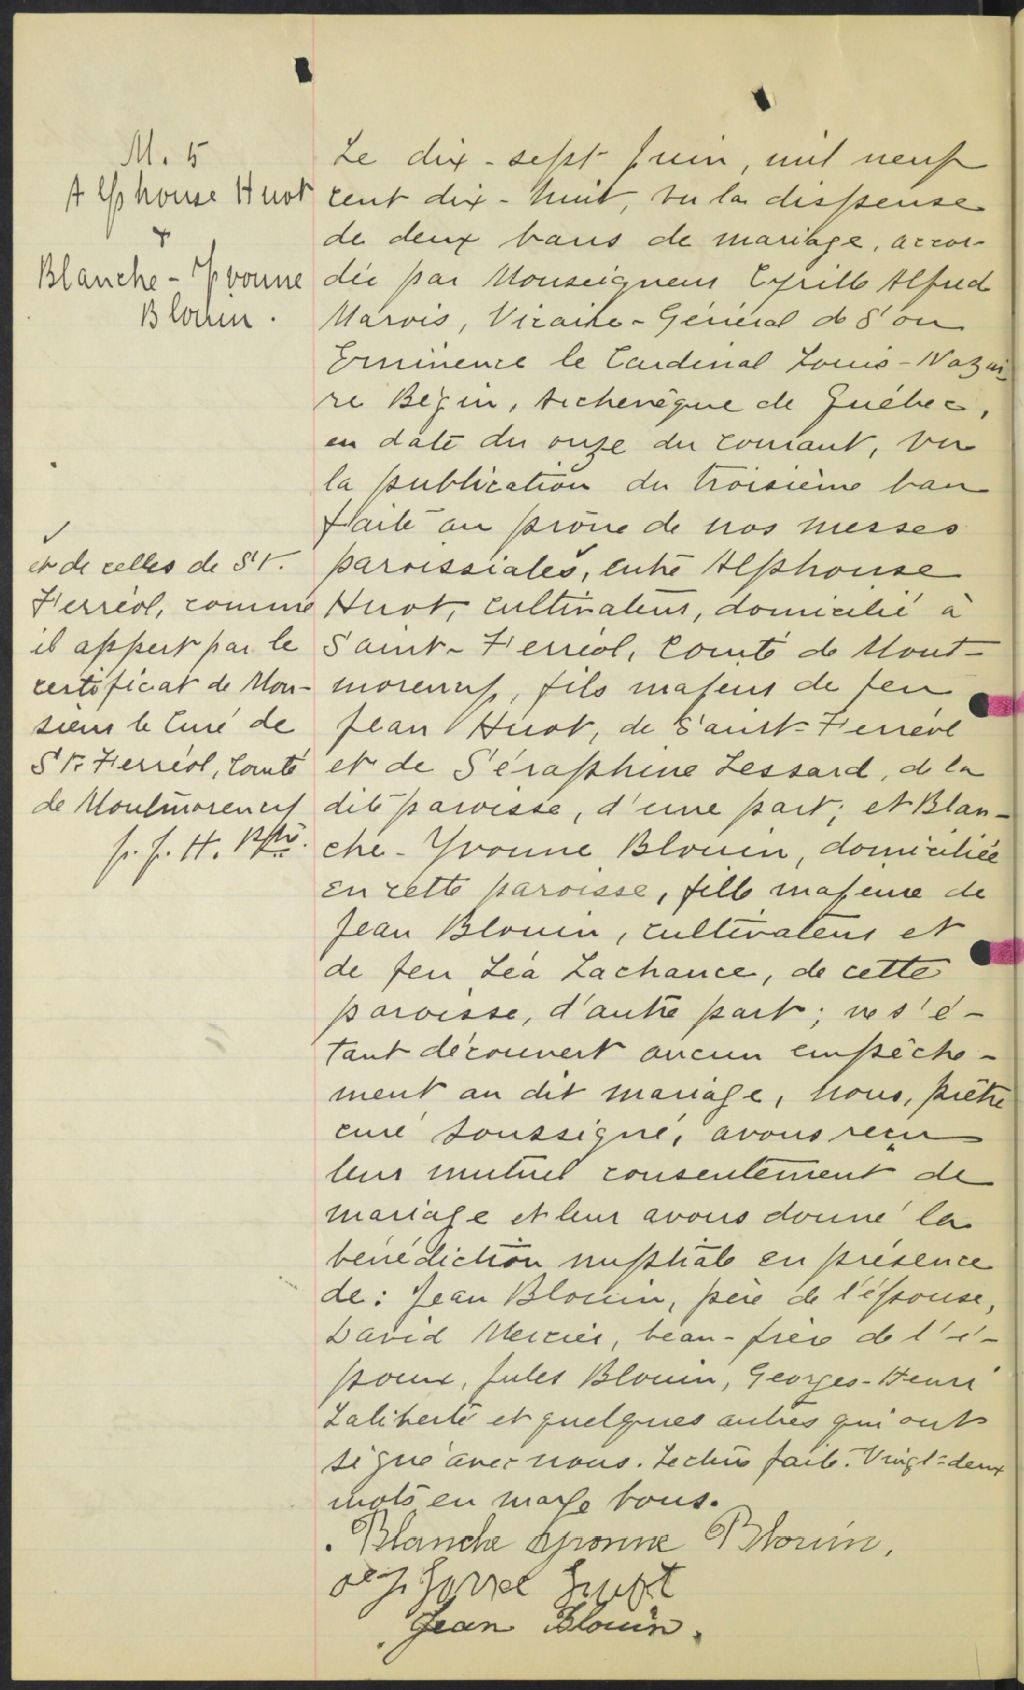 M. 5
Alphonse Huot
+
Blanche-Yvonne
Blouin.
Le dix-sept Juin, mil neuf
cent dix-huit, vu la dispense
de deux bans de mariage, accor-
dée par Monseigneur Cyrille Alfred
Marois, Vicaire-Général de Son
Eminence le Cardinal Louis-Nazai-
re Bégin, Archevêque de Québec,
en date du onze du courant, vu
la publication du troisième ban
faite au prône de nos messes
paroissiales, entre Alphonse
Huot, cultivateur, domicilié à
Saint-Ferréol, Comté de Mont-
morency, fils majeur de feu
Jean Huot, de Saint-Ferréol
et de Séraphine Lessard, de la
dite paroisse, d'une part; et Blan-
che-Yvonne Blouin, domiciliée
en cette paroisse, fille majeure de
Jean Blouin, cultivateur et
de feu Léa Lachance, de cette
paroisse, d'autre part; ne s'é-
tant découvert aucun empêche-
ment au dit mariage, nous, prêtre
curé soussigné, avons reçu
leur mutuel consentement de
mariage et leur avons donné la
bénédiction nuptiale en présence
de: Jean Blouin, père de l'épouse,
David Mercier, beau-frère de l'é-
poux, Jules Blouin, Georges-Henri
Laliberté et quelques autres qui ont
signé avec nous. Lecture faite. Vingt-deux
mots en marge bons.
✓
et de celles de St.
Ferréol, comme
il appert par le
certificat de Mon-
sieur le Curé de
St. Ferréol, Comté
de Montmorency
J. J. H. Ptre.
Blanche Yvonne Blouin.
Alphonse Huot
Jean Blouin.